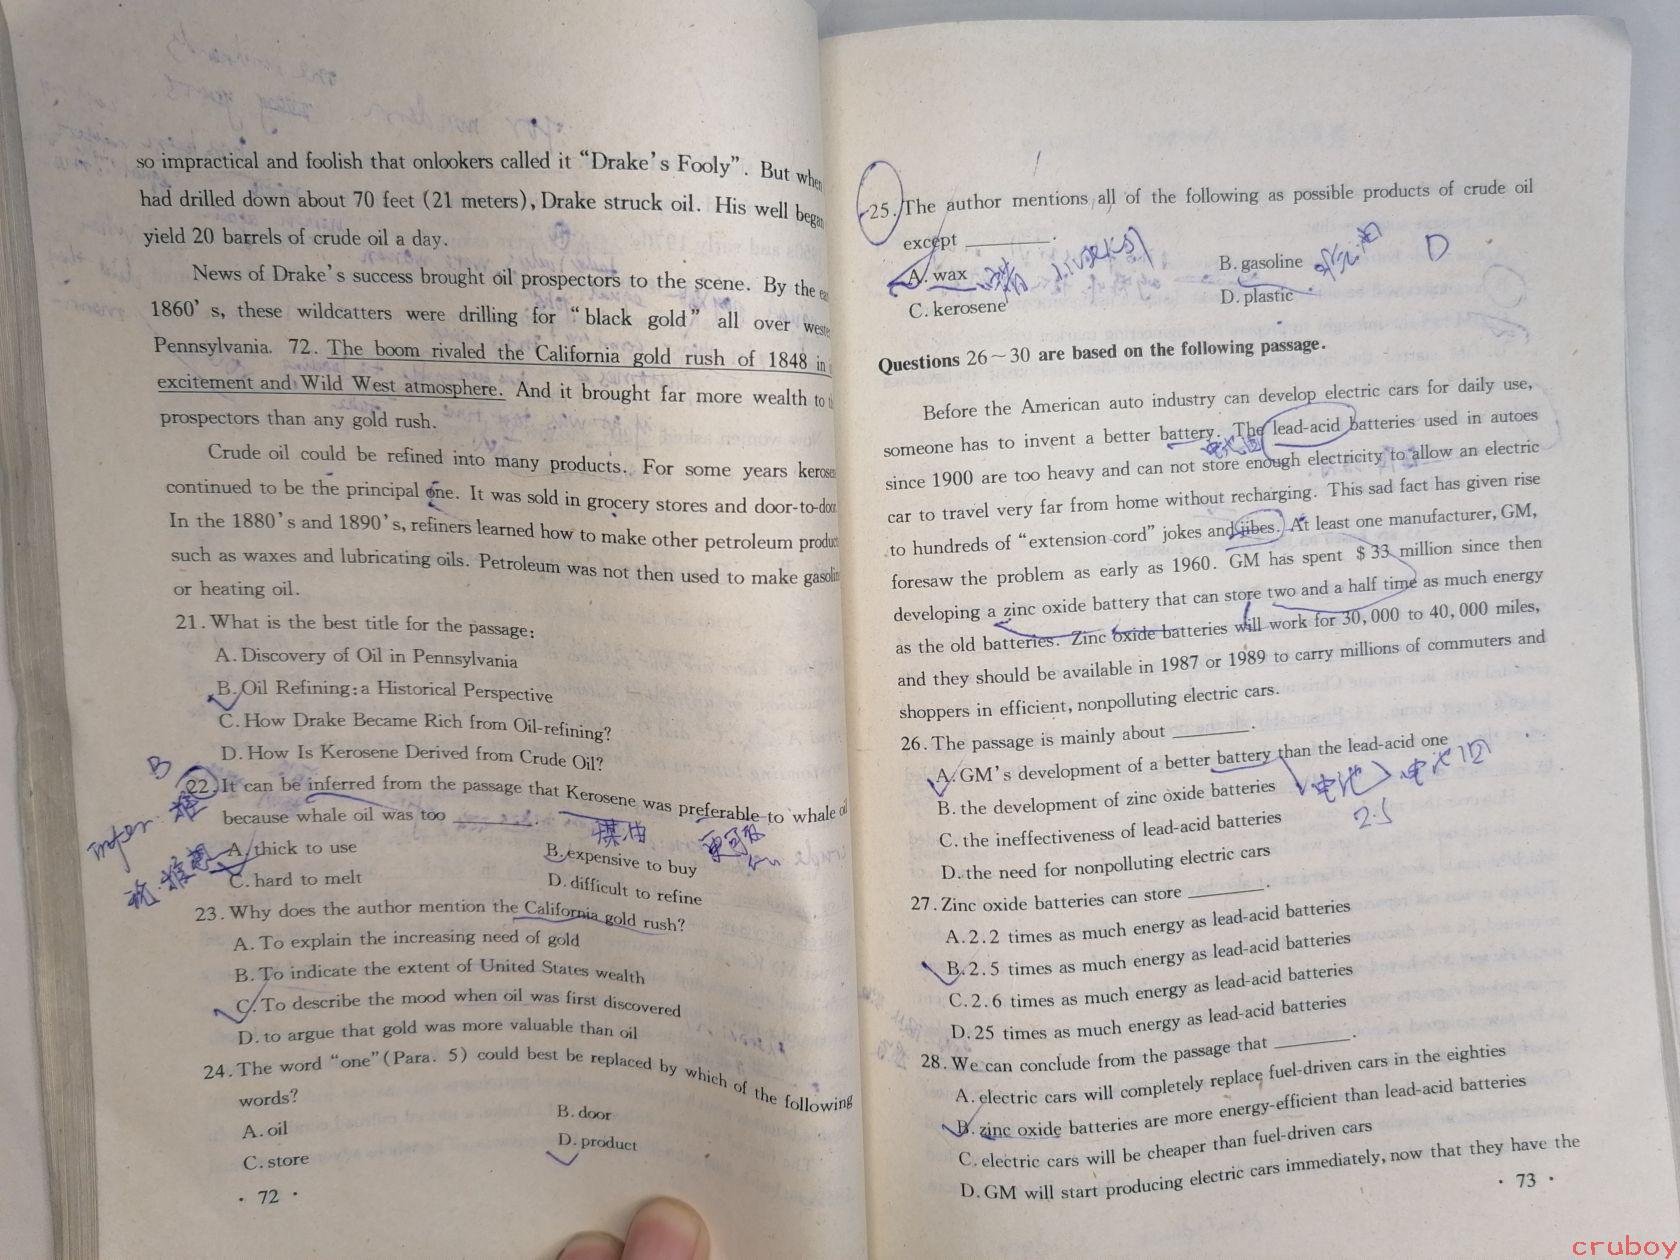 so impractical and foolish that onlookers called it “Drake's Fooly”. But when
had drilled down about 70 feet (21 meters), Drake struck oil. His well began
yield 20 barrels of crude oil a day.
News of Drake's success brought oil prospectors to the scene. By the
1860's, these wildcatters were drilling for “black gold” all over
Pennsylvania. 72. The boom rivaled the California gold rush of 1848 in
excitement and Wild West atmosphere. And it brought far more wealth to
prospectors than any gold rush.
Crude oil could be refined into many products. For some years
continued to be the principal one. It was sold in grocery stores and door-to-door.
In the 1880's and 1890's, refiners learned how to make other petroleum
such as waxes and lubricating oils. Petroleum was not then used to make
or heating oil.
21. What is the best title for the passage:
A. Discovery of Oil in Pennsylvania
B. Oil Refining: a Historical Perspective
C. How Drake Became Rich from Oil-refining?
D. How Is Kerosene Derived from Crude Oil?
B
22. It can be inferred from the passage that Kerosene was preferable to whale oil
because whale oil was too ________.
煤油
Infer.
A. thick to use
B. expensive to buy
C. hard to melt
D. difficult to refine
23. Why does the author mention the California gold rush?
A. To explain the increasing need of gold
B. To indicate the extent of United States wealth
C. To describe the mood when oil was first discovered
D. to argue that gold was more valuable than oil
24. The word “one”(Para. 5) could best be replaced by which of the following
words?
A. oil
B. door
C. store
D. product
· 72 ·
25. The author mentions all of the following as possible products of crude oil
except ________.
D
A. wax
B. gasoline
C. kerosene
D. plastic
Questions 26～30 are based on the following passage.
Before the American auto industry can develop electric cars for daily use,
someone has to invent a better battery. The lead-acid batteries used in autoes
since 1900 are too heavy and can not store enough electricity to allow an electric
car to travel very far from home without recharging. This sad fact has given rise
to hundreds of “extension cord” jokes and jibes. At least one manufacturer, GM,
foresaw the problem as early as 1960. GM has spent $33 million since then
developing a zinc oxide battery that can store two and a half time as much energy
as the old batteries. Zinc oxide batteries will work for 30,000 to 40,000 miles,
and they should be available in 1987 or 1989 to carry millions of commuters and
shoppers in efficient, nonpolluting electric cars.
26. The passage is mainly about ________.
A. GM's development of a better battery than the lead-acid one
B. the development of zinc oxide batteries
电池
2.5
C. the ineffectiveness of lead-acid batteries
D. the need for nonpolluting electric cars
27. Zinc oxide batteries can store ________.
A. 2.2 times as much energy as lead-acid batteries
B. 2.5 times as much energy as lead-acid batteries
C. 2.6 times as much energy as lead-acid batteries
D. 25 times as much energy as lead-acid batteries
28. We can conclude from the passage that ________.
A. electric cars will completely replace fuel-driven cars in the eighties
B. zinc oxide batteries are more energy-efficient than lead-acid batteries
C. electric cars will be cheaper than fuel-driven cars
D. GM will start producing electric cars immediately, now that they have the
· 73 ·
cruboy